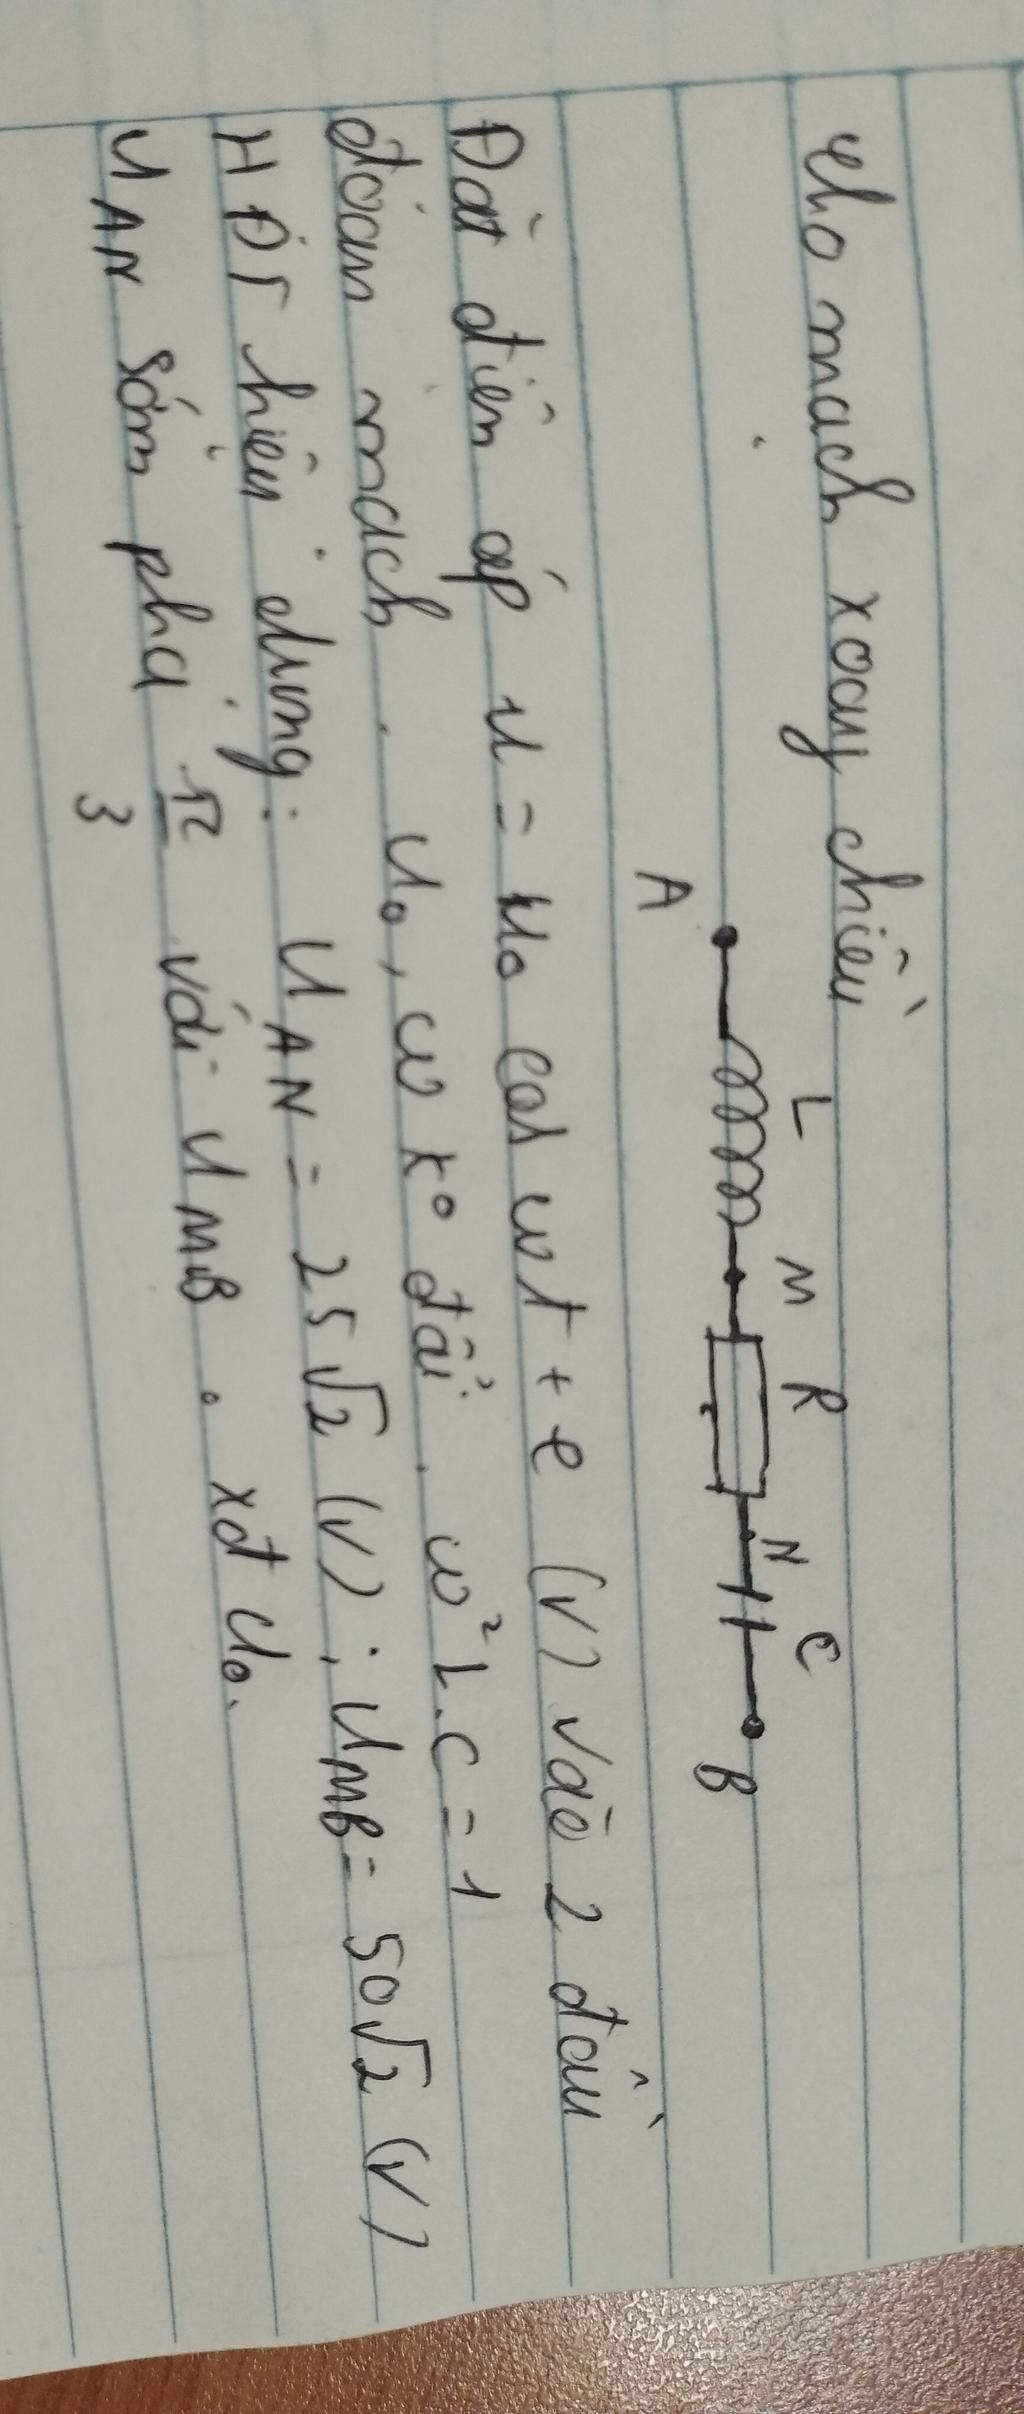 cho mạch xoay chiều
L M R N C
A B
Đặt điện áp u = U₀ cos ωt + φ (V) vào 2 đầu
đoạn mạch. U₀, ω k° đổi. ω²L.C = 1
HĐT hiệu dụng: U AN = 25√2 (V); U MB = 50√2 (V)
U AN sớm pha π/3 với U MB. xđ U₀.